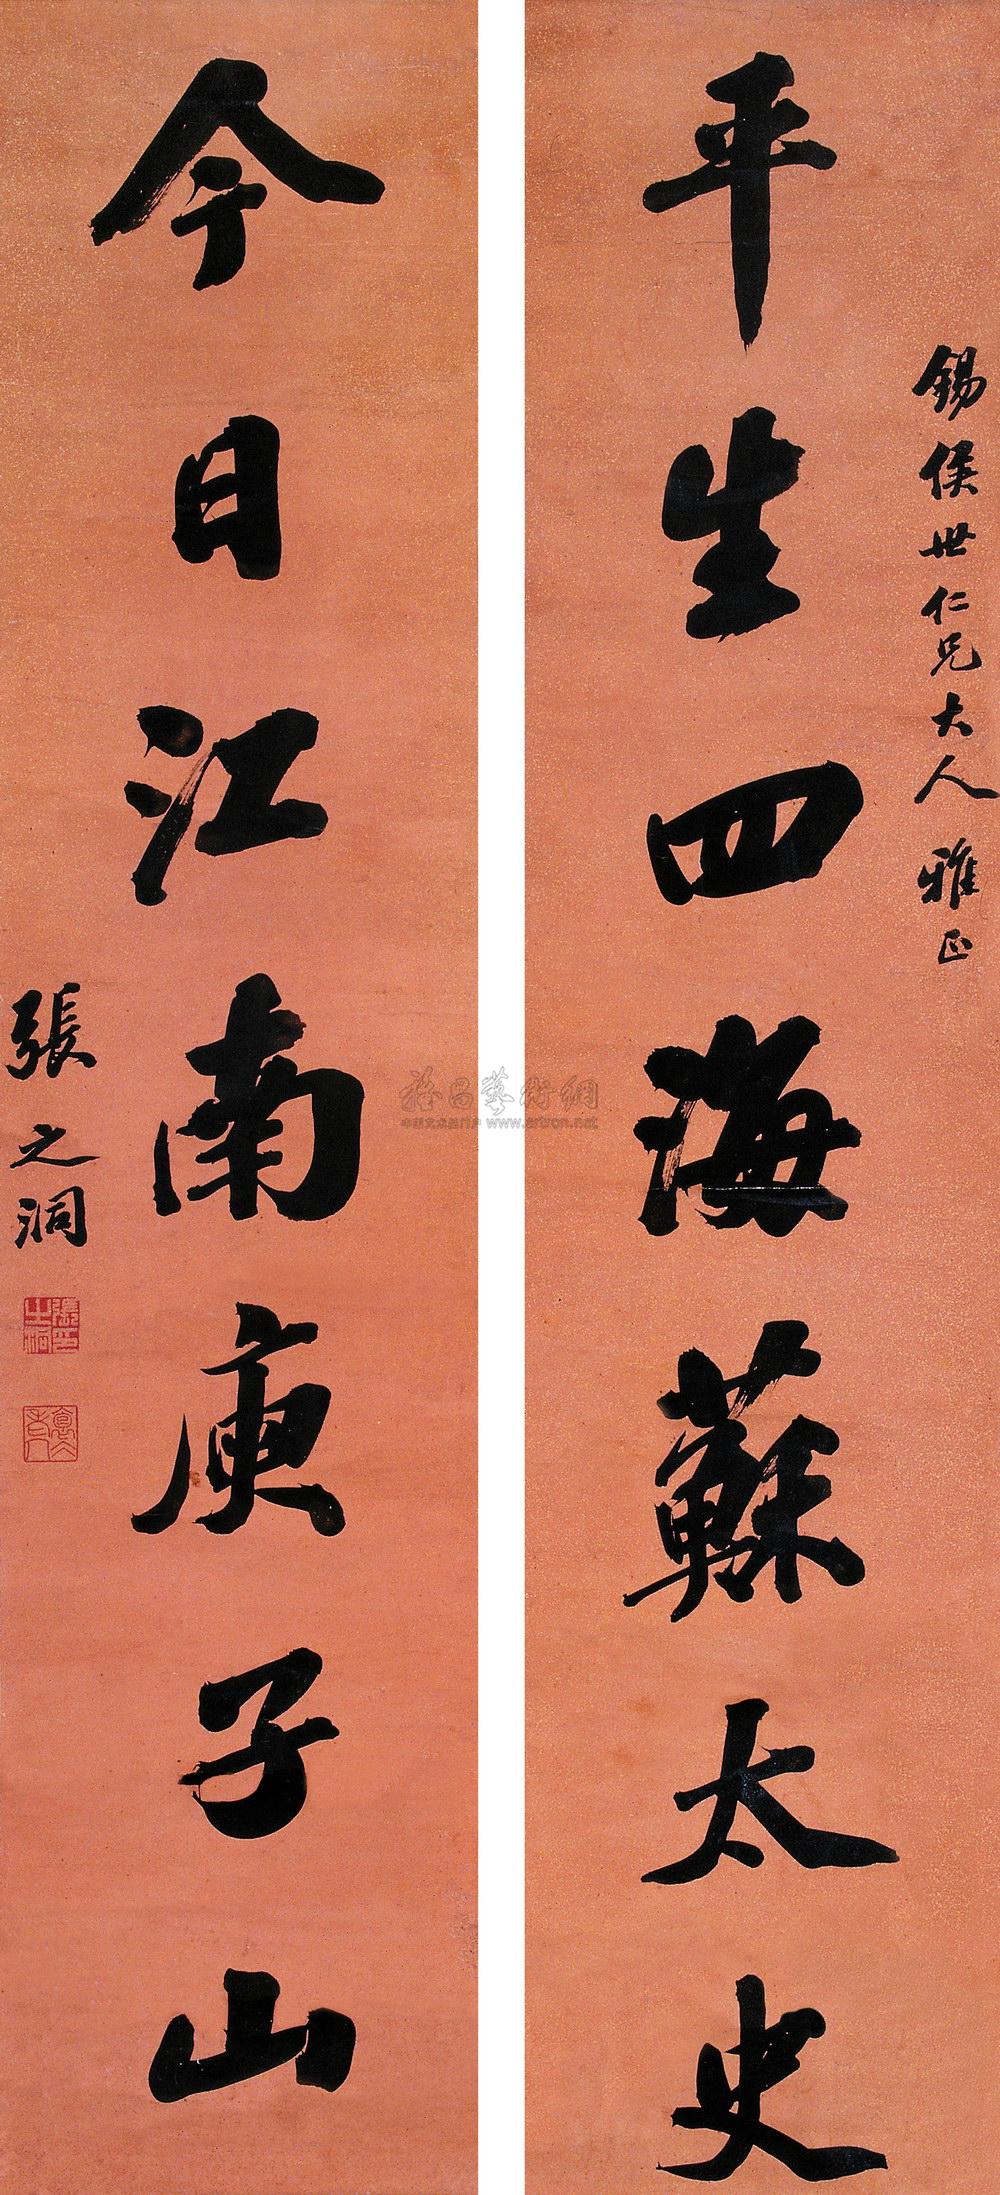 平生四海蘇太史
錫侯世仁兄大人雅正
今日江南庾子山
張之洞
張之洞印
www.artron.net